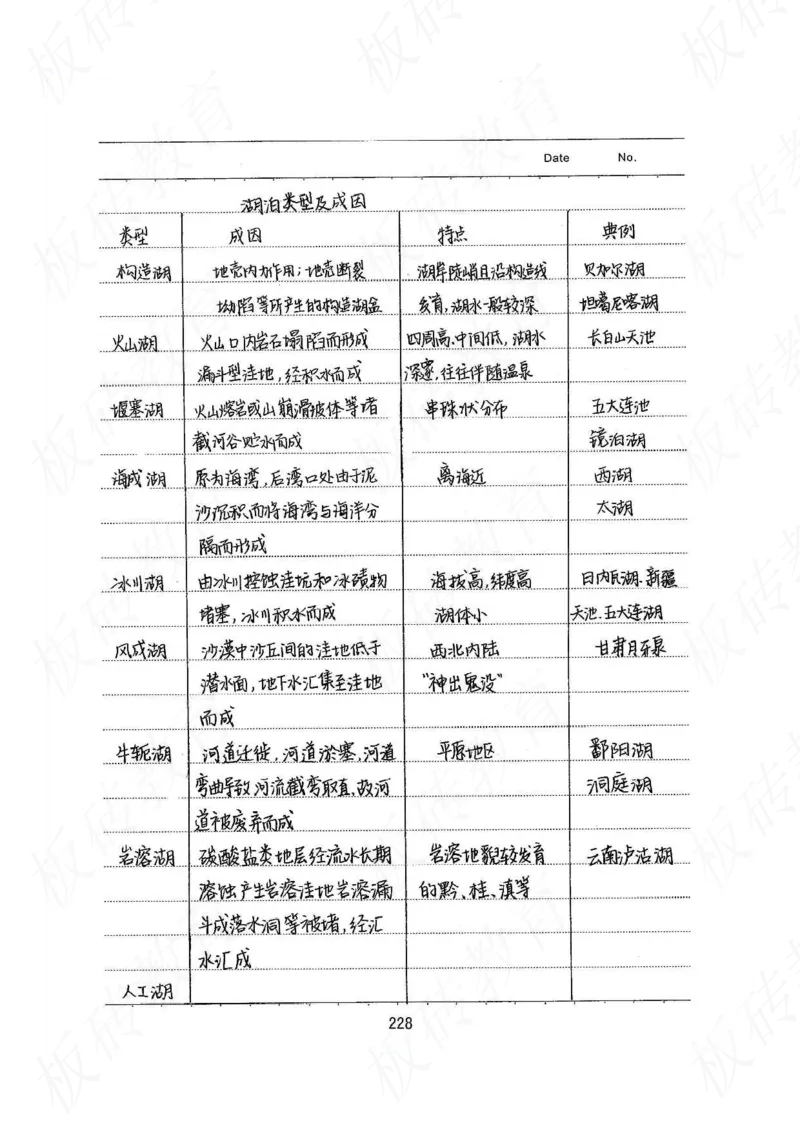 Date No.
湖泊类型及成因
类型 成因 特点 典例
构造湖 地壳内力作用;地壳断裂 湖岸陡峭且沿构造线 贝加尔湖
坳陷等所产生的构造湖盆 发育,湖水一般较深 坦噶尼喀湖
火山湖 火山口内岩石塌陷而形成 四周高、中间低,湖水 长白山天池
漏斗型洼地,经积水而成 深邃,往往伴随温泉
堰塞湖 火山熔岩或山崩滑坡体等堵 串珠状分布 五大连池
截河谷贮水而成 镜泊湖
海成湖 原为海湾,后湾口处由于泥 离海近 西湖
沙沉积而将海湾与海洋分 太湖
隔而形成
冰川湖 由冰川挖蚀洼坑和冰碛物 海拔高,纬度高 日内瓦湖.新疆
堵塞,冰川积水而成 湖体小 天池.五大连湖
风成湖 沙漠中沙丘间的洼地低于 西北内陆 甘肃月牙泉
潜水面,地下水汇集至洼地 “神出鬼没”
而成
牛轭湖 河道迁徙,河道淤塞,河道 平原地区 鄱阳湖
弯曲导致河流截弯取直、故河 洞庭湖
道被废弃而成
岩溶湖 碳酸盐类地层经流水长期 岩溶地貌较发育 云南泸沽湖
溶蚀产生岩溶洼地岩溶漏 的黔、桂、滇等
斗或落水洞等被堵,经汇
水汇成
人工湖
228
板砖教育